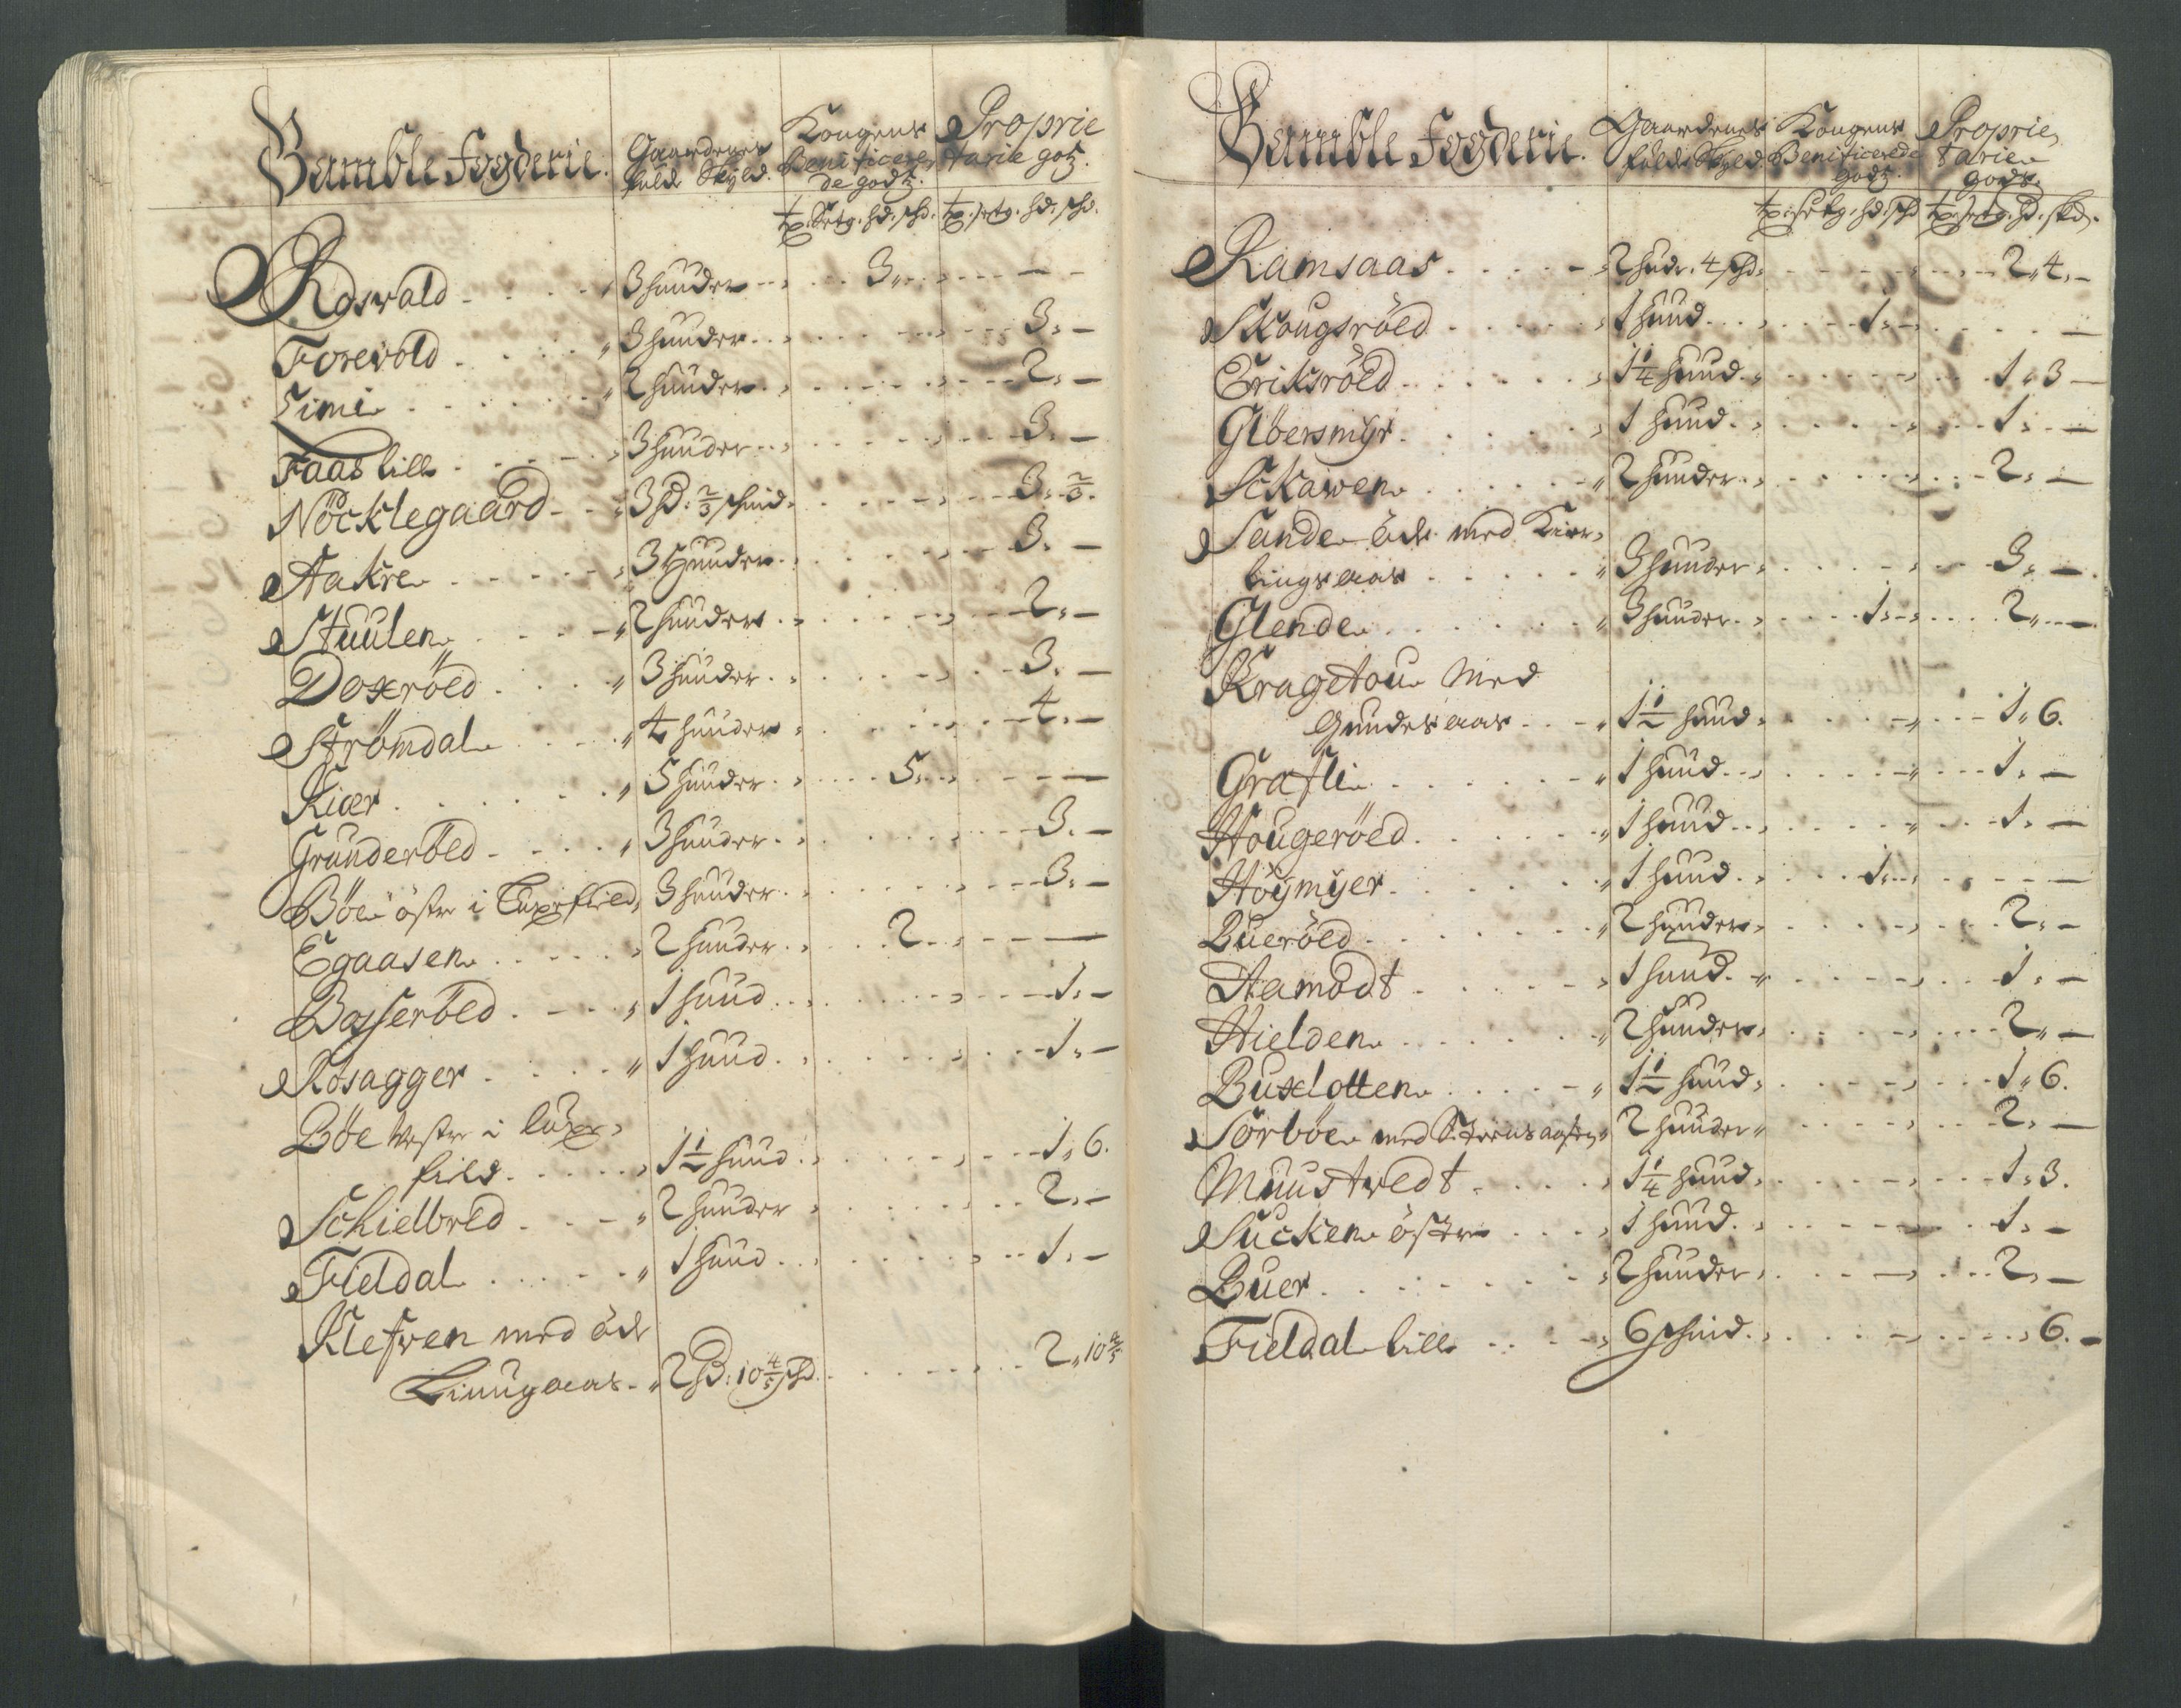 Bamble Fogderie.
Gaardenes fulde Skyld.
Kongens Beneficerede godtz.
Proprietarie gotz.
tp. Srtg. hd. shd. tp. srtg. hd. shd.
Roswald 3 huuder 3 —
Forewold 3 huuder 3 —
Timie 2 huuder 2 —
Faas lille 3 huuder 3 —
Nöcklegaard 3 hd. 2/3 skind 3 2/3.
Aakre 3 Huuder 3 —
Stuulen 2 huuder 2 —
Doxeröed 3 huuder 3 —
Strömdal 4 huuder 4 —
Kiær 5 huuder 5 —
Grunderöed 3 huuder 3 —
Böe östre i 3 huuder 3 —
Egaasen 2 huuder 2 —
Basseröed 1 huud 1 —
Rösagger 1 huud 1 —
Böe westre i
field 1½ huud 1 6.
Schielbred 2 huuder 2 —
Fieldal 1 huud 1 —
Klefwen med öde
Linnugaas 2 hd: 10 4/5 shd. 2 10 4/5
Bamble Fogderie.
Gaardenes fulde Skyld
Kongens Beneficerede godtz.
Proprietarie gods.
tp. srtg. hd. shd tp. srtg. hd. shd.
Ramsaas 2 hudr. 4 shd 2 4 —
Skougsröed 1 huud 1 —
Eriksröed 1¼ huud 1 3 —
Glöersmyr 1 huud 1 —
Sckawen 2 huuder 2 —
Sande öde med Kier-
lingsaas 3 huuder 3 —
Glende 3 huuder 1 2 —
Kragetou Med
Gundersaas 1½ huud 1 6.
Grafli 1 huud 1 —
Hougeröed 1 huud 1 —
Höymyer 1 huud 1 —
Bueröed 2 huuder 2 —
Aamodt 1 huud 1 —
Hielden 2 huuder 2 —
Buxelotten 1½ huud 1 6.
Sörböe med 2 huuder 2 —
Muustvedt 1¼ huud 1 3.
Sucken östre 1 huud 1 —
Buer 2 huuder 2 —
Fieldal lille 6 skind 6 —